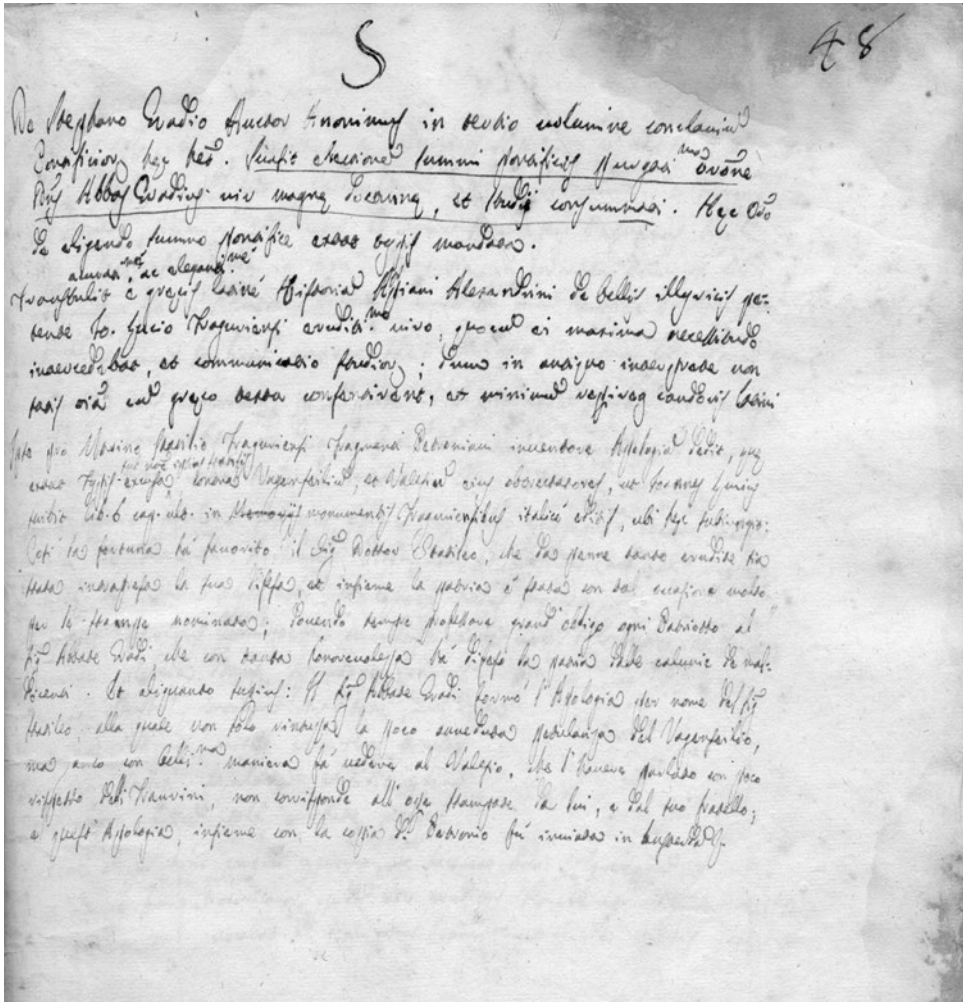 S
48
De Stephano Gradio Auctor Anonimus in tertio volumine conclaviu
Pontificior hęc het. Electione summi Pontificis
Abbas Gradius vir magnę doctrinę, et studii consummati. Hęc Oro
de eligendo summo Pontifice extat typis mandata.
ac elegan
Transtulit è gręcis latinè Historia Appiani Alexandrini de bellis illyricis pe-
tente Jo. Lucio Traguriensi erudit.mo viro, quocu ei maxima necessitudo
intercedebat, et communicatio studior; Dum in antiquo interprete non
satis oia cu gręco textu consentirent, et minimu candoris latini
pro Marino Statilio Traguriensi fragmenti Petroniani inventore Apologia dedit, quę
extat contra Vagenseiliu, et Valesiu eius obtrectatores, ut Joannes Lucius
lib. 6 cap. ult. in monumentis Traguriensibus italicè editis, ubi hęc
la fortuna hà favorito il Sig Dottor Statileo, che da penne tanto erudite sia
stata intrapresa la sua difesa, et insieme la patria è stata con tal occasione molto
per le stampe nominata; dovendo sempre professare grand' obligo ogni Patriotto al
Sig Abbate Gradi che con tanta honorevolezza hà difesa la patria dalle calunie de mal-
dicenti. Et aliquanto: Il Sig Abbate Gradi formò l'Apologia per nome del Sig
Statileo, alla quale non solo rintuzza la poco avveduta petulanza del Vagenseilio,
ma anco con bellis.ma maniera fà vedere al Valesio, che l'havere parlato con poco
rispetto delli Traurini, non corrisponde all' ope stampate da lui, e dal suo fratello;
e quest' Apologia, insieme con la copia di Petronio fù inviata in